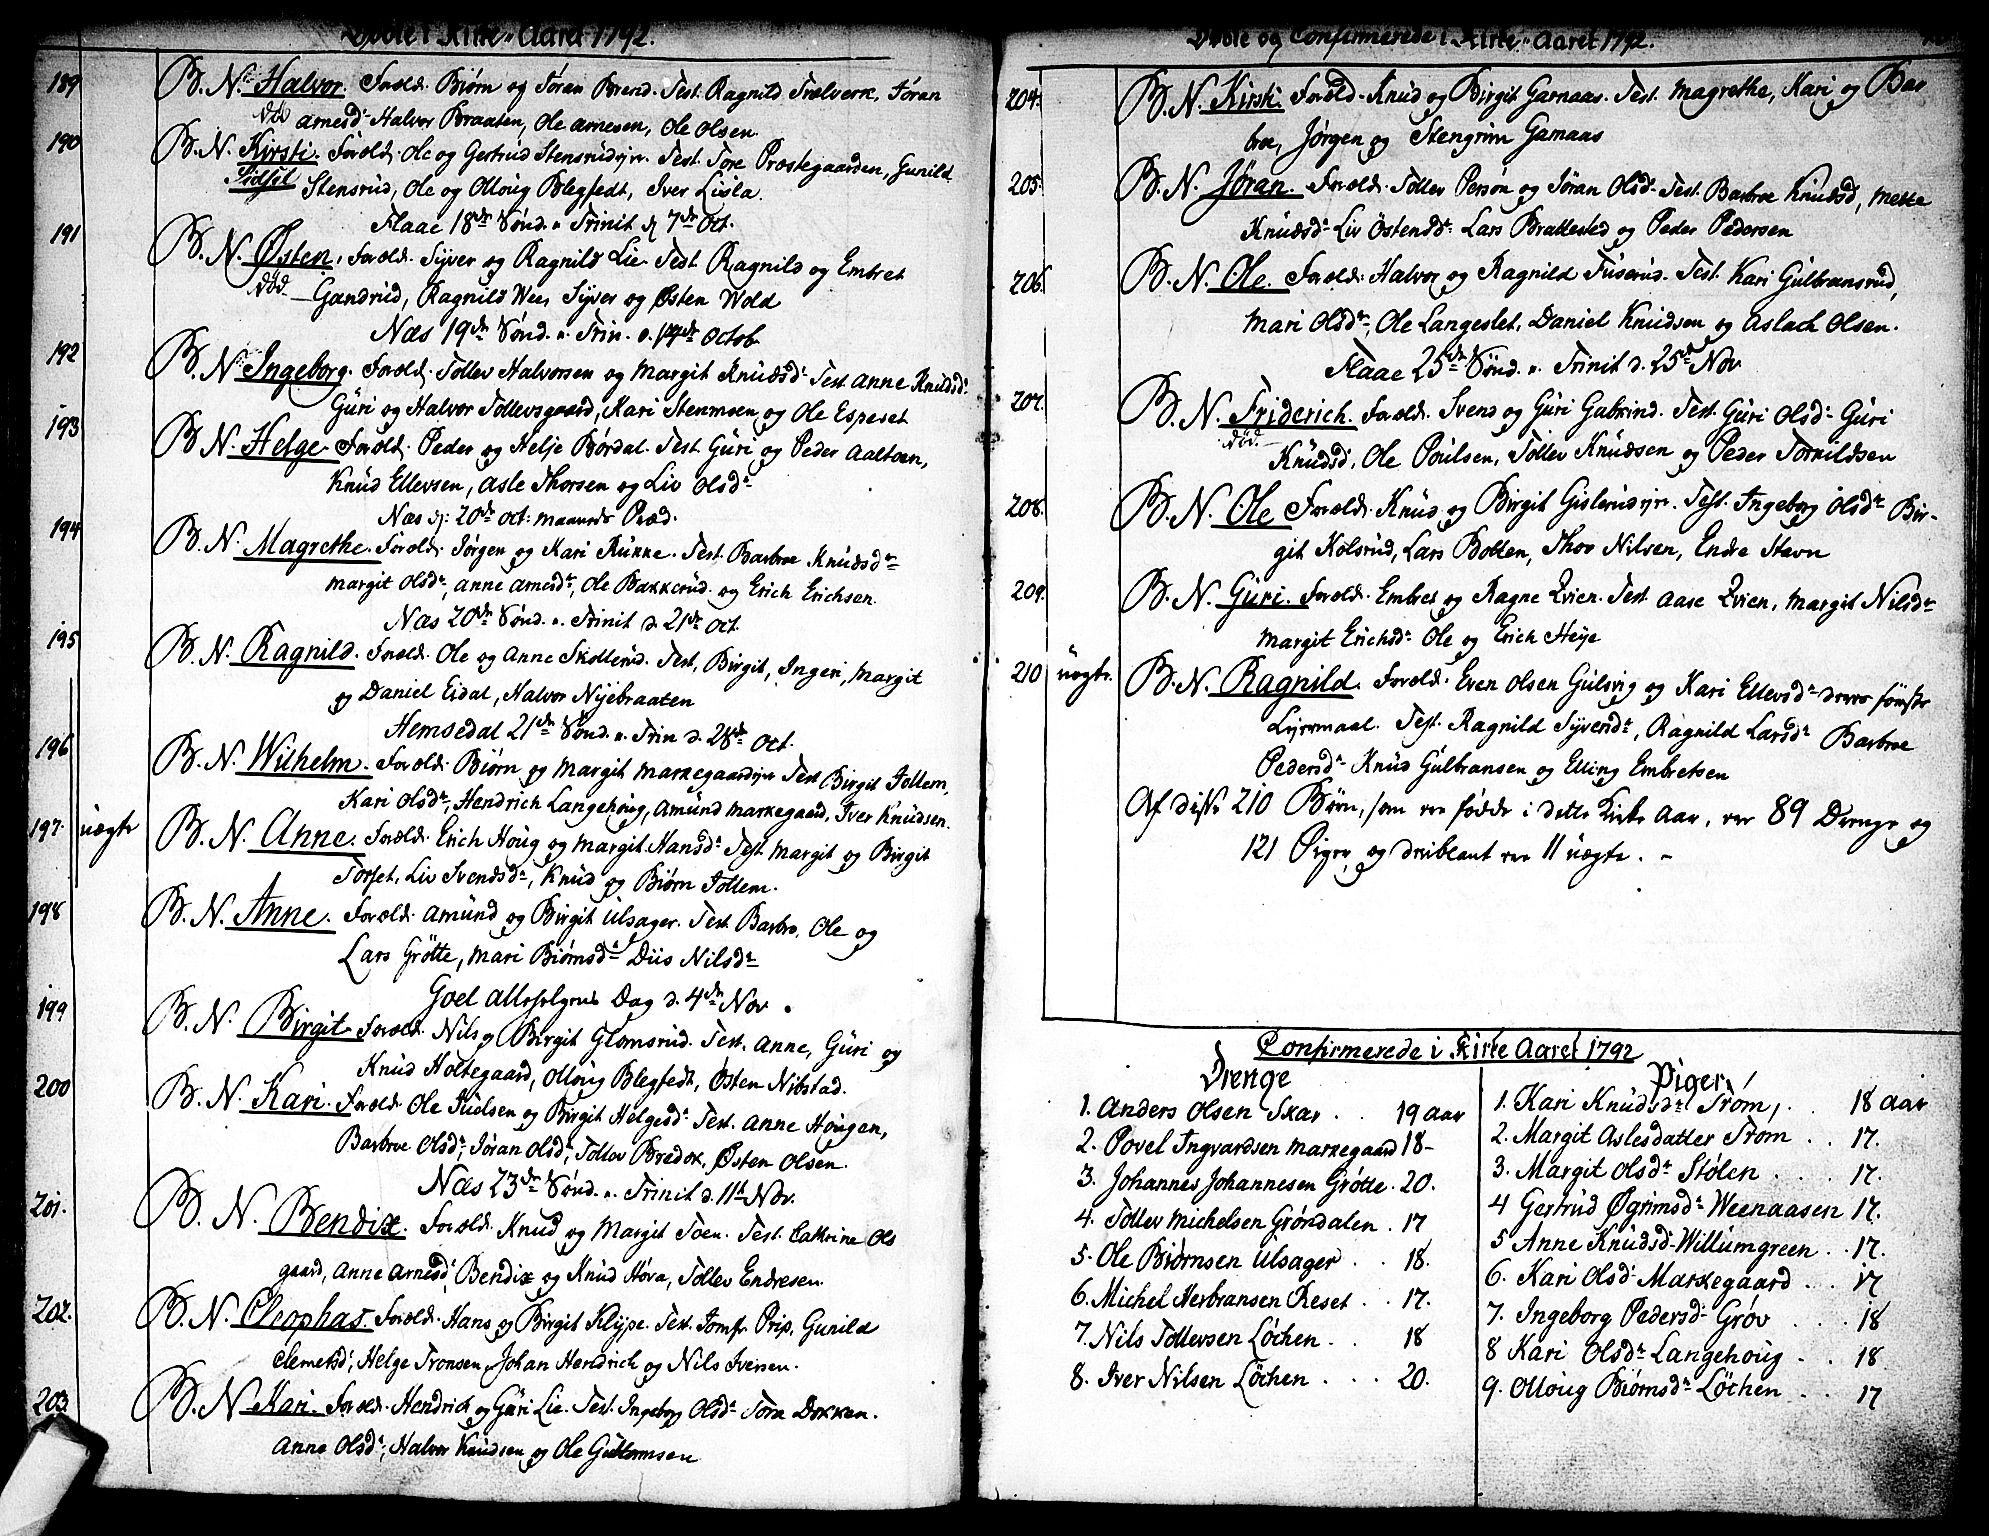 Døbte i Kirke-Aaret 1792.
189 B. N. Halvor. Foræld. Biørn og Jøran Brend. Test. Ragnild Trælverk, Jøran
død Arnesd. Halvor Braaten, Ole Arnesen, Ole Olsen.
190 B. N. Kirsti. Foræld. Ole og Gertrud Stensrudejer. Test. Tore Præstegaarden, Gunild
Stensrud, Ole og Olloug Blegfedt, Iver Lisla.
Flaae 18de Sønd. p. Trinit d. 7de Oct.
191 B. N. Østen. Foræld. Syver og Ragnild Lie. Test. Ragnild og Embret
død. Gandrud, Ragnild Wee, Syver og Østen Wold
Næs 19de Sønd. p. Trin. d. 14de Octob
192 B. N. Ingeborg. Foræld. Tollev Halvorsen og Margit Knudsdr. Test. Anne Knudsdr.
Guri og Halvor Tollevsgaard, Kari Stenmoen og Ole Espeset
193 B. N. Helge. Foræld. Peder og Helje Børdal. Test. Guri og Peder Aaltoen,
Knud Ellevsen, Asle Thorsen og Liv Olsdr.
Næs d. 20de Oct: maaneds Præd.
194 B. N. Magrethe. Foræld. Jørgen og Kari Rukke. Test. Barbroe Knudsdr.
Margit Olsdr, Anne Arnesdr, Ole Bakkerud og Erich Erichsen.
Næs 20de Sønd. p. Trinit d. 21de Oct.
195 B. N. Ragnild. Foræld. Ole og Anne Skollerud. Test. Birgit, Ingeri, Margit
og Daniel Eidal, Halvor Nyebraaten
Hemsedal 21de Sønd. p. Trin d. 28de Oct.
196 B. N. Wilhelm. Foræld. Biørn og Margit Markegaardejer. Test. Birgit Jollem,
Kari Olsdr, Hendrich Langehoug, Amund Markegaard, Iver Knudsen.
197. uægte B. N. Anne. Foræld. Erich Houg og Margit Hansdr. Test. Margit og Birgit
Torset, Liv Svendsdr, Knud og Biørn Jollem.
198 B. N. Anne. Foræld. Amund og Birgit Ulsager. Test. Barbro, Ole og
Lars Grøtte, Mari Biørnsdr Diis Nilsdr
Goel Allehelgens Dag d. 4de Nov.
199 B. N. Birgit. Foræld. Nils og Birgit Glomsrud. Test. Anne, Guri og
Knud Holtegaard, Olloug Blegfedt, Østen Nibstad.
200 B. N. Kari. Foræld. Ole Juelsen og Birgit Helgesdr. Test. Anne Hougen,
Barbroe Olsdr, Jøran Olsdr, Tollev Bredok, Østen Olsen.
Næs 23de Sønd. p. Trinit d. 11te Nov.
201. B. N. Bendix. Foræld. Knud og Margit Toen. Test. Cathrine Ols
gaard, Anne Arnesdr, Bendix og Knud Hova, Tollev Endresen.
202. B. N. Cleophas. Foræld. Hans og Birgit Klype. Test. Jomfr. Prip, Gunild
Clemetsdr, Helge Tronsen, Johan Hendrich og Nils Iversen.
203 B. N. Kari. Foræld. Hendrich og Guri Lie. Test. Ingeborg Olsdr. Tore Dokken.
Anne Olsdr, Halvor Knudsen og Ole Guttormsen
Døbte og Confirmerede i Kirke-Aaret 1792.
204. B. N. Kirsti. Foræld. Knud og Birgit Garnaas. Test. Magrethe, Kari og Bar
broe, Jørgen og Stengrim Garnaas
205. B. N. Jøran. Foræld. Tollev Persøn og Jøran Olsdr. Test. Barbroe Knudsd, Mette
Knudsdr. Liv Østensdr. Lars Brattested og Peder Pedersen
206. B. N. Ole. Foræld. Halvor og Ragnild Tuserud. Test. Kari Gulbransrud,
Mari Olsdr, Ole Langeslet, Daniel Knudsen og Aslach Olsen.
Flaae 25de Sønd. p. Trinit d. 25de Nov
207. B. N. Friderich. Foræld. Svend og Guri Gubrind. Test. Guri Olsdr. Guri
død. Knudsd, Ole Poulsen, Tollev Knudsen og Peder Tornildsen
208. B. N. Ole. Foræld. Knud og Birgit Gislerudejer. Test. Ingeborg Olsdr. Bir-
git Kolsrud, Lars Botten, Thor Nilsen, Endre Stavn
209. B. N. Guri. Foræld. Embret og Ragne Qvien. Test. Aase Qvien, Margit Nilsdr.
Margit Erichsdr. Ole og Erich Heije
210 uægte. B. N. Ragnild. Foræld. Even Olsen Gulsvig og Kari Ellevsdr. deres første
Leiermaal. Test. Ragnild Syversdr, Ragnild Larsdr. Barbroe
Pedersdr. Knud Gulbransen og Elling Embretsen
Af disse 210 Børn, som ere fødde i dette Kirke Aar, ere 89 Drenge og
121 Piger, og deriblant ere 11 uægte. -
Confirmerede i Kirke Aaret 1792
Drenge
1. Anders Olsen Skar . . 19 aar
2. Povel Ingvardsen Markegaard 18-
3. Johannes Johannesen Grøtte . 20.
4. Tollev Michelsen Grøndalen . 17
5. Ole Biørnsen Ulsager . . 18.
6. Michel Herbransen Reset . . 17.
7. Nils Tollevsen Løchen . . 18
8. Iver Nilsen Løchen . . . 20.
Piger
1. Kari Knudsdr Trøm, . . 18 aar
2. Margit Aslesdatter Trøm . . 17.
3. Margit Olsdr Stølen . . . 17.
4 Gertrud Øgrimsdr Weenaasen 17.
5 Anne Knudsdr Willumgreen . . 17.
6. Kari Olsdr Markegaard . . 17
7. Ingeborg Pedersdr Grøv . . . 18
8 Kari Olsdr Langehoug . . 18
9. Olloug Biørnsdr Løchen . . 17